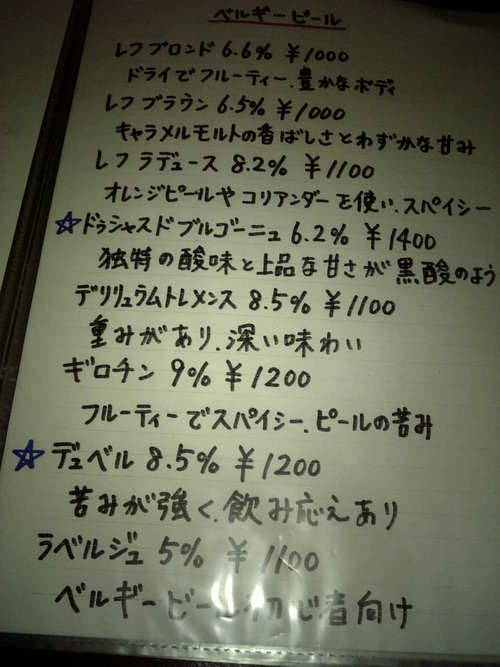 ベルギービール
レフブロンド 6.6% ¥1000
ドライでフルーティー、豊かなボディ
レフブラウン 6.5% ¥1000
キャラメルモルトの香ばしさとわずかな甘み
レフラデュース 8.2% ¥1100
オレンジピールやコリアンダーを使い、スパイシー
☆ドゥシャスドブルゴーニュ 6.2% ¥1400
独特の酸味と上品な甘さが黒酸のよう
デリリュウムトレメンス 8.5% ¥1100
重みがあり、深い味わい
ギロチン 9% ¥1200
フルーティーでスパイシー、ピールの苦み
☆デュベル 8.5% ¥1200
苦みが強く、飲み応えあり
ラベルジュ 5% ¥1100
ベルギービール初心者向け